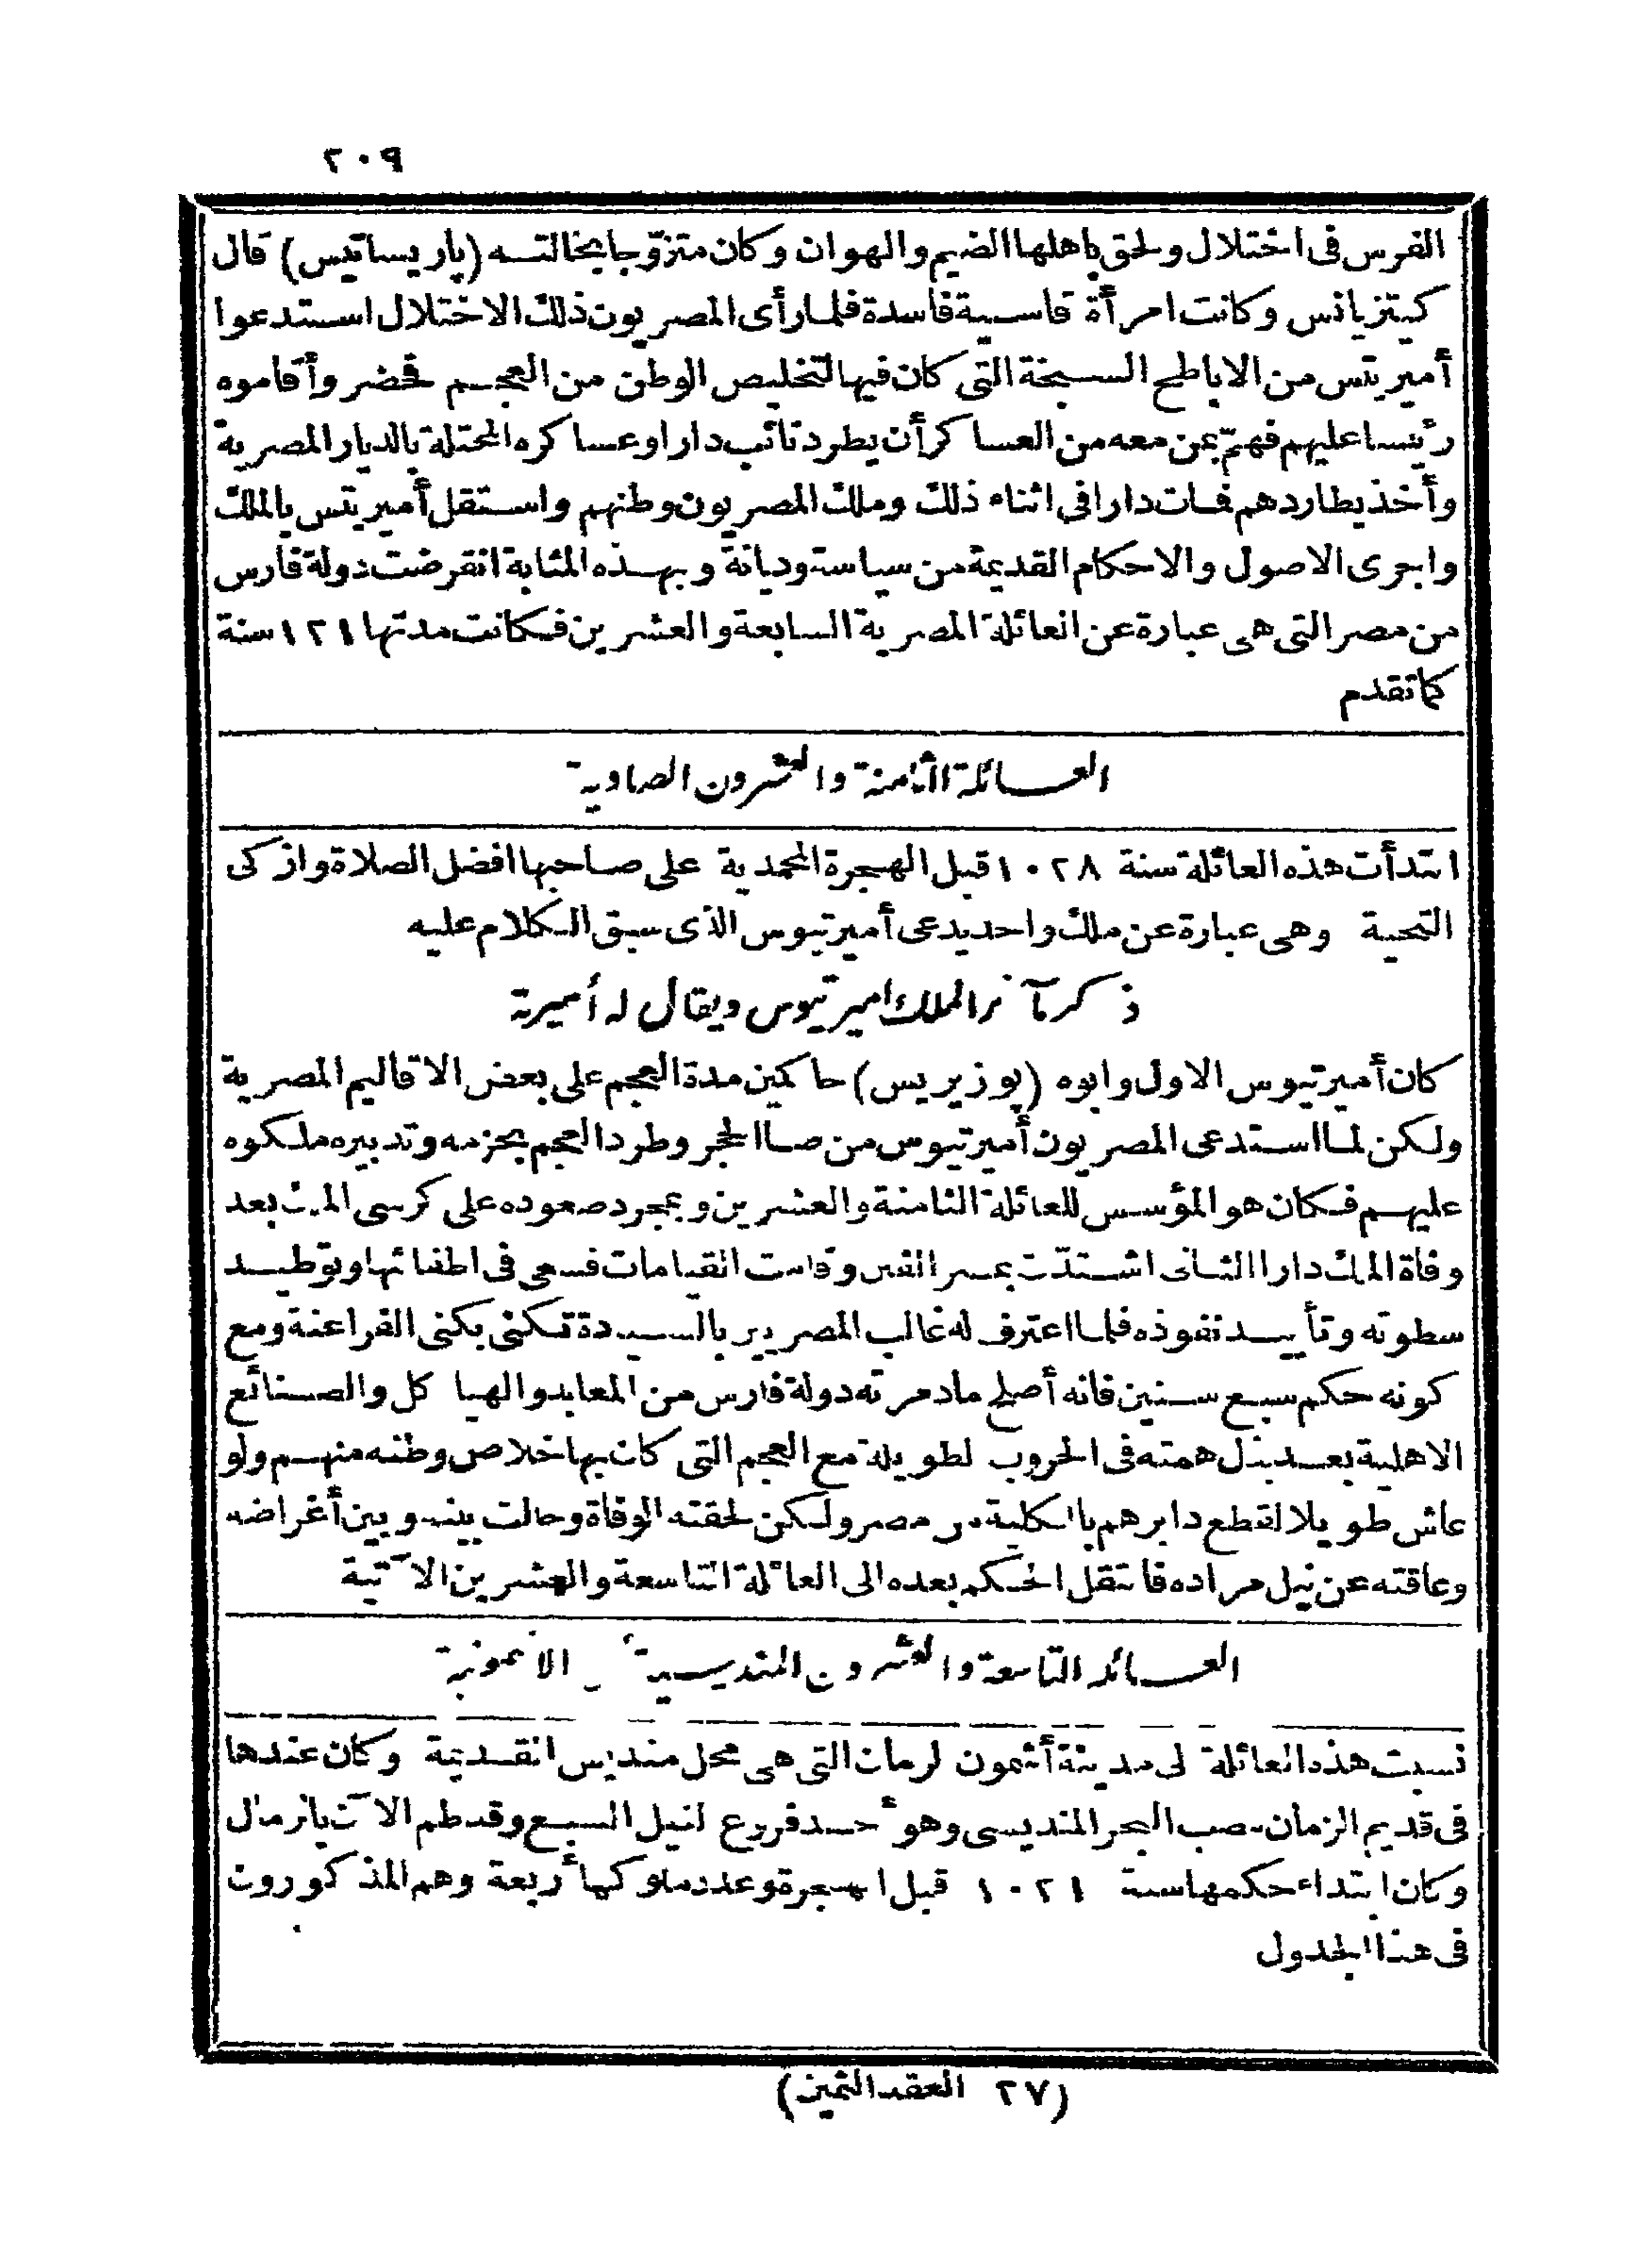 ٢٠٩
الفرس فى اختلال ولحق باهلها الضيم والهوان وكان متزوّجا بخالتـه (پاريساتيس) قال
كيتزياس وكانت امرأة قاسـية فاسدة فلمـا رأى المصريون ذلك الاختلال اسـتدعوا
أميريتس من الاباطح السـبخة التى كان فيها لتخليص الوطن من العجـم فحضر وأقاموه
رئيسا عليهم فهمّ بمن معه من العساكر أن يطرد نائب دارا وعساكره المحتلة بالديار المصرية
وأخذ يطاردهم فـات دارا فى اثناء ذلك وملك المصريون وطنهم واسـتقل أميريتس بالملك
واجرى الاصول والاحكام القديمة من سياسة وديانة وبهـذه المثابة انقرضت دولة فارس
من مصر التى هى عبارة عن العائلة المصرية السابعة والعشرين فـكانت مدتها ١٢١ سنة
كما تقدم
العـائلة الثامنة والعشرون الصاوية
ابتدأت هذه العائلة سنة ١٠٢٨ قبل الهجرة المحمدية على صاحبها افضل الصلاة وازكى
التحية وهى عبارة عن ملك واحد يدعى أميرتيوس الذى سبق الـكلام عليه
ذكر مآثر الملك اميرتيوس ويقال له أميرتة
كان أميرتيوس الاول وابوه (پوزيريس) حاكمين مدة العجم على بعض الاقاليم المصرية
ولـكن لمـا اسـتدعى المصريون أميرتيوس من صا الحجر وطرد العجم بحزمه وتدبيره ملـكوه
عليهـم فـكان هو المؤسس للعائلة الثامنة والعشرين وبمجرد صعوده على كرسى الملك بعد
وفاة الملك دارا الثـانى اشـتدّت بمصر الفتن وقامت القيامات فسعى فى اطفائها وتوطيـد
سطوته وتأييـد نفوذه فلمـا اعترف له غالب المصريين بالسـيادة تـكنى بكنى الفراعنة ومع
كونه حكم سبع سـنين فانه أصلح ما دمرته دولة فارس من المعابد والهياكل والصـنائع
الاهلية بعـد بذل همته فى الحروب لطويلة مع العجم التى كان بها خلاص وطنه منهـم ولو
عاش طويلا لقطع دابرهم بالـكلية من مصر ولـكن لحقته الوفاة وحالت بينـه وبين أغراضه
وعاقته عن نيل مراده فانتقل الحـكم بعده الى العائلة التاسعة والعشرين الآتية
العـائلة التاسعة والعشرون المنديسـية الاشمونية
نسبت هذه العائلة لى مدينة أشمون لرمان التى هى محل منديس القـديمة وكان عندها
فى قديم الزمان مصب البحر المنديسى وهو أحـد فروع لنيل السبع وقد طم الآن بالرمال
وكان ابتداء حكمها سنة ١٠٢١ قبل الهـجرة وعدد ملوكها أربعة وهم المذكورون
فى هذا الجدول
(٢٧ العقد الثمين)